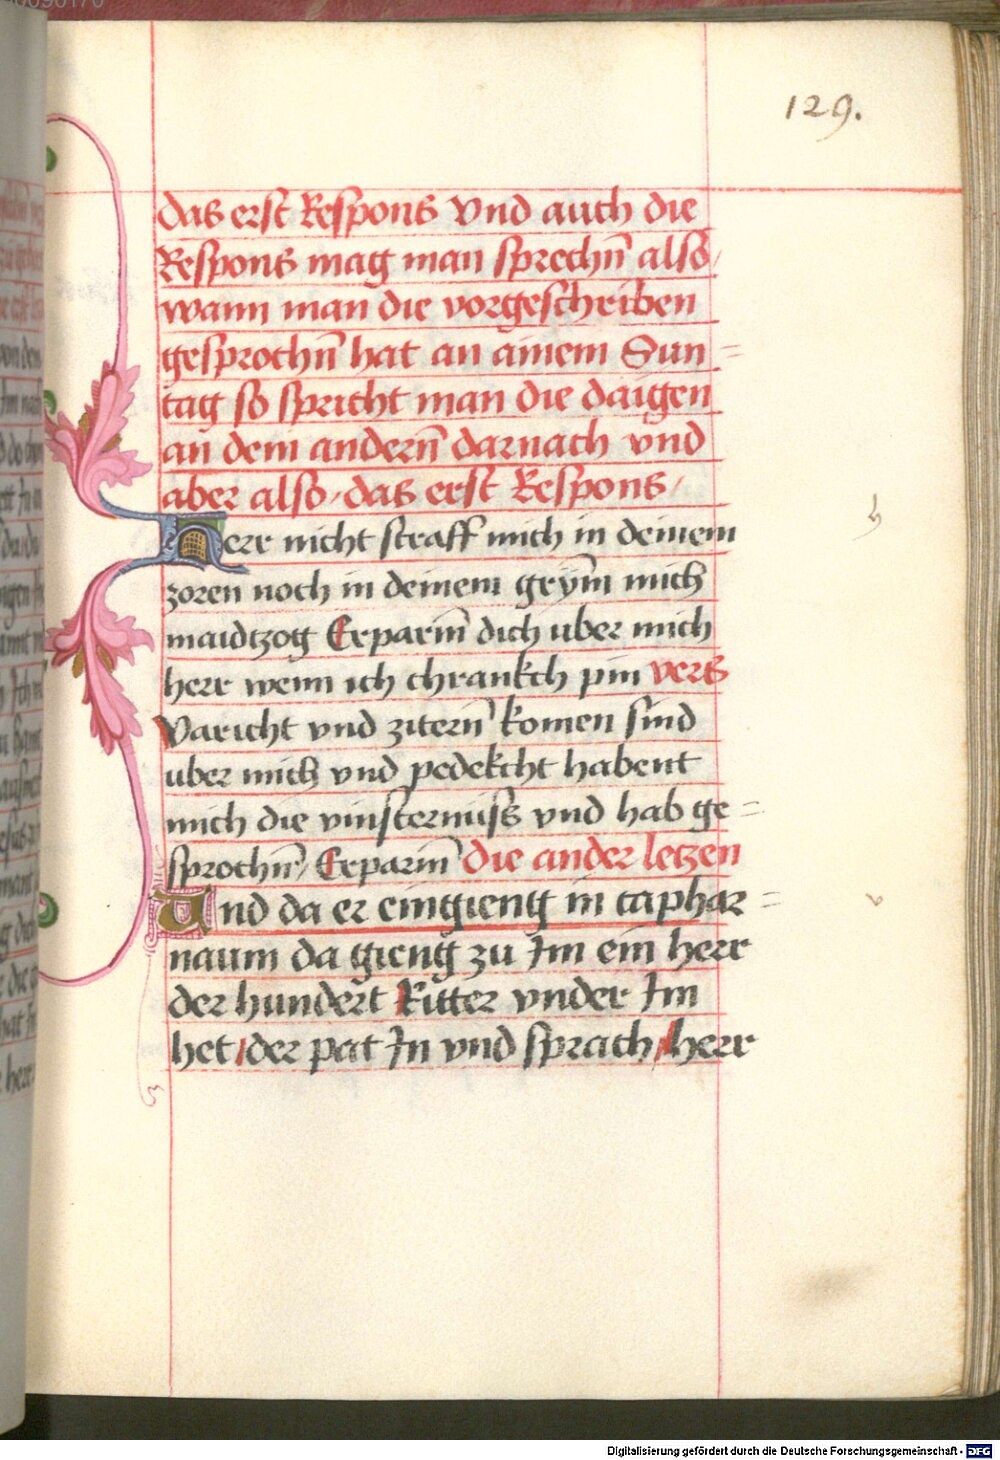 129.
das erst Respons Vnd auch die
Respons mag man sprechn̄ also /
wann man die vorgeschriben
gesprochn̄ hat an ainem Sun =
tag so spricht man die daigen
an dem andern̄ darnach vnd
aber also / das erst Respons /
Herr nicht straff mich in deinem
zoren noch in deinem grym̄ mich
maidtzog Erparm̄ dich uber mich
herr wenn ich chrankch pin vers
Varicht vnd zitern̄ komen sind
uber mich vnd pedekcht habent
mich die vinsternüss vnd hab ge =
sprochn̄ / Erparm̄ die ander letzen
Und da er eingieng in caphar =
naum da gieng zu Im ein herr
der hundert Ritter vnder Im
het / der pat In vnd sprach / herr
h
v
Digitalisierung gefördert durch die Deutsche Forschungsgemeinschaft - DFG